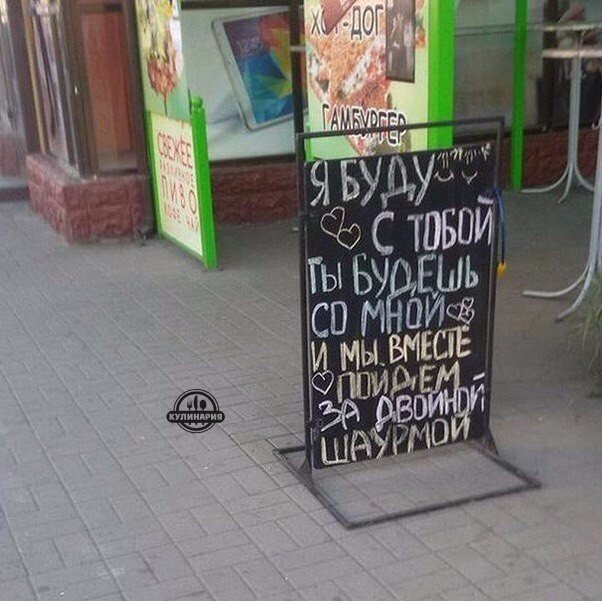 ХОТ-ДОГ
ГАМБУРГЕР
СВЕЖЕЕ
ПИВО
Я БУДУ
С ТОБОЙ
ТЫ БУДЕШЬ
СО МНОЙ
И МЫ ВМЕСТЕ
ПОЙДЕМ
ЗА ДВОЙНОЙ
ШАУРМОЙ
КУЛИНАРИЯ